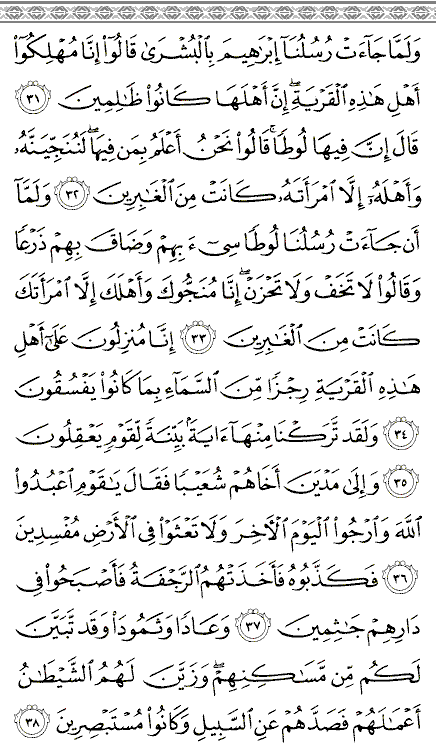 وَلَمَّا جَآءَتْ رُسُلُنَآ إِبْرَٰهِيمَ بِٱلْبُشْرَىٰ قَالُوٓا۟ إِنَّا مُهْلِكُوٓا۟
أَهْلِ هَٰذِهِ ٱلْقَرْيَةِ ۖ إِنَّ أَهْلَهَا كَانُوا۟ ظَٰلِمِينَ ٣١
قَالَ إِنَّ فِيهَا لُوطًا ۚ قَالُوا۟ نَحْنُ أَعْلَمُ بِمَن فِيهَا ۖ لَنُنَجِّيَنَّهُۥ
وَأَهْلَهُۥٓ إِلَّا ٱمْرَأَتَهُۥ كَانَتْ مِنَ ٱلْغَٰبِرِينَ ٣٢ وَلَمَّآ
أَن جَآءَتْ رُسُلُنَا لُوطًا سِىٓءَ بِهِمْ وَضَاقَ بِهِمْ ذَرْعًا
وَقَالُوا۟ لَا تَخَفْ وَلَا تَحْزَنْ ۖ إِنَّا مُنَجُّوكَ وَأَهْلَكَ إِلَّا ٱمْرَأَتَكَ
كَانَتْ مِنَ ٱلْغَٰبِرِينَ ٣٣ إِنَّا مُنزِلُونَ عَلَىٰٓ أَهْلِ
هَٰذِهِ ٱلْقَرْيَةِ رِجْزًا مِّنَ ٱلسَّمَآءِ بِمَا كَانُوا۟ يَفْسُقُونَ
٣٤ وَلَقَد تَّرَكْنَا مِنْهَآ ءَايَةًۢ بَيِّنَةً لِّقَوْمٍ يَعْقِلُونَ
٣٥ وَإِلَىٰ مَدْيَنَ أَخَاهُمْ شُعَيْبًا فَقَالَ يَٰقَوْمِ ٱعْبُدُوا۟
ٱللَّهَ وَٱرْجُوا۟ ٱلْيَوْمَ ٱلْءَاخِرَ وَلَا تَعْثَوْا۟ فِى ٱلْأَرْضِ مُفْسِدِينَ
٣٦ فَكَذَّبُوهُ فَأَخَذَتْهُمُ ٱلرَّجْفَةُ فَأَصْبَحُوا۟ فِى
دَارِهِمْ جَٰثِمِينَ ٣٧ وَعَادًا وَثَمُودَا۟ وَقَد تَّبَيَّنَ
لَكُم مِّن مَّسَٰكِنِهِمْ ۖ وَزَيَّنَ لَهُمُ ٱلشَّيْطَٰنُ
أَعْمَٰلَهُمْ فَصَدَّهُمْ عَنِ ٱلسَّبِيلِ وَكَانُوا۟ مُسْتَبْصِرِينَ ٣٨